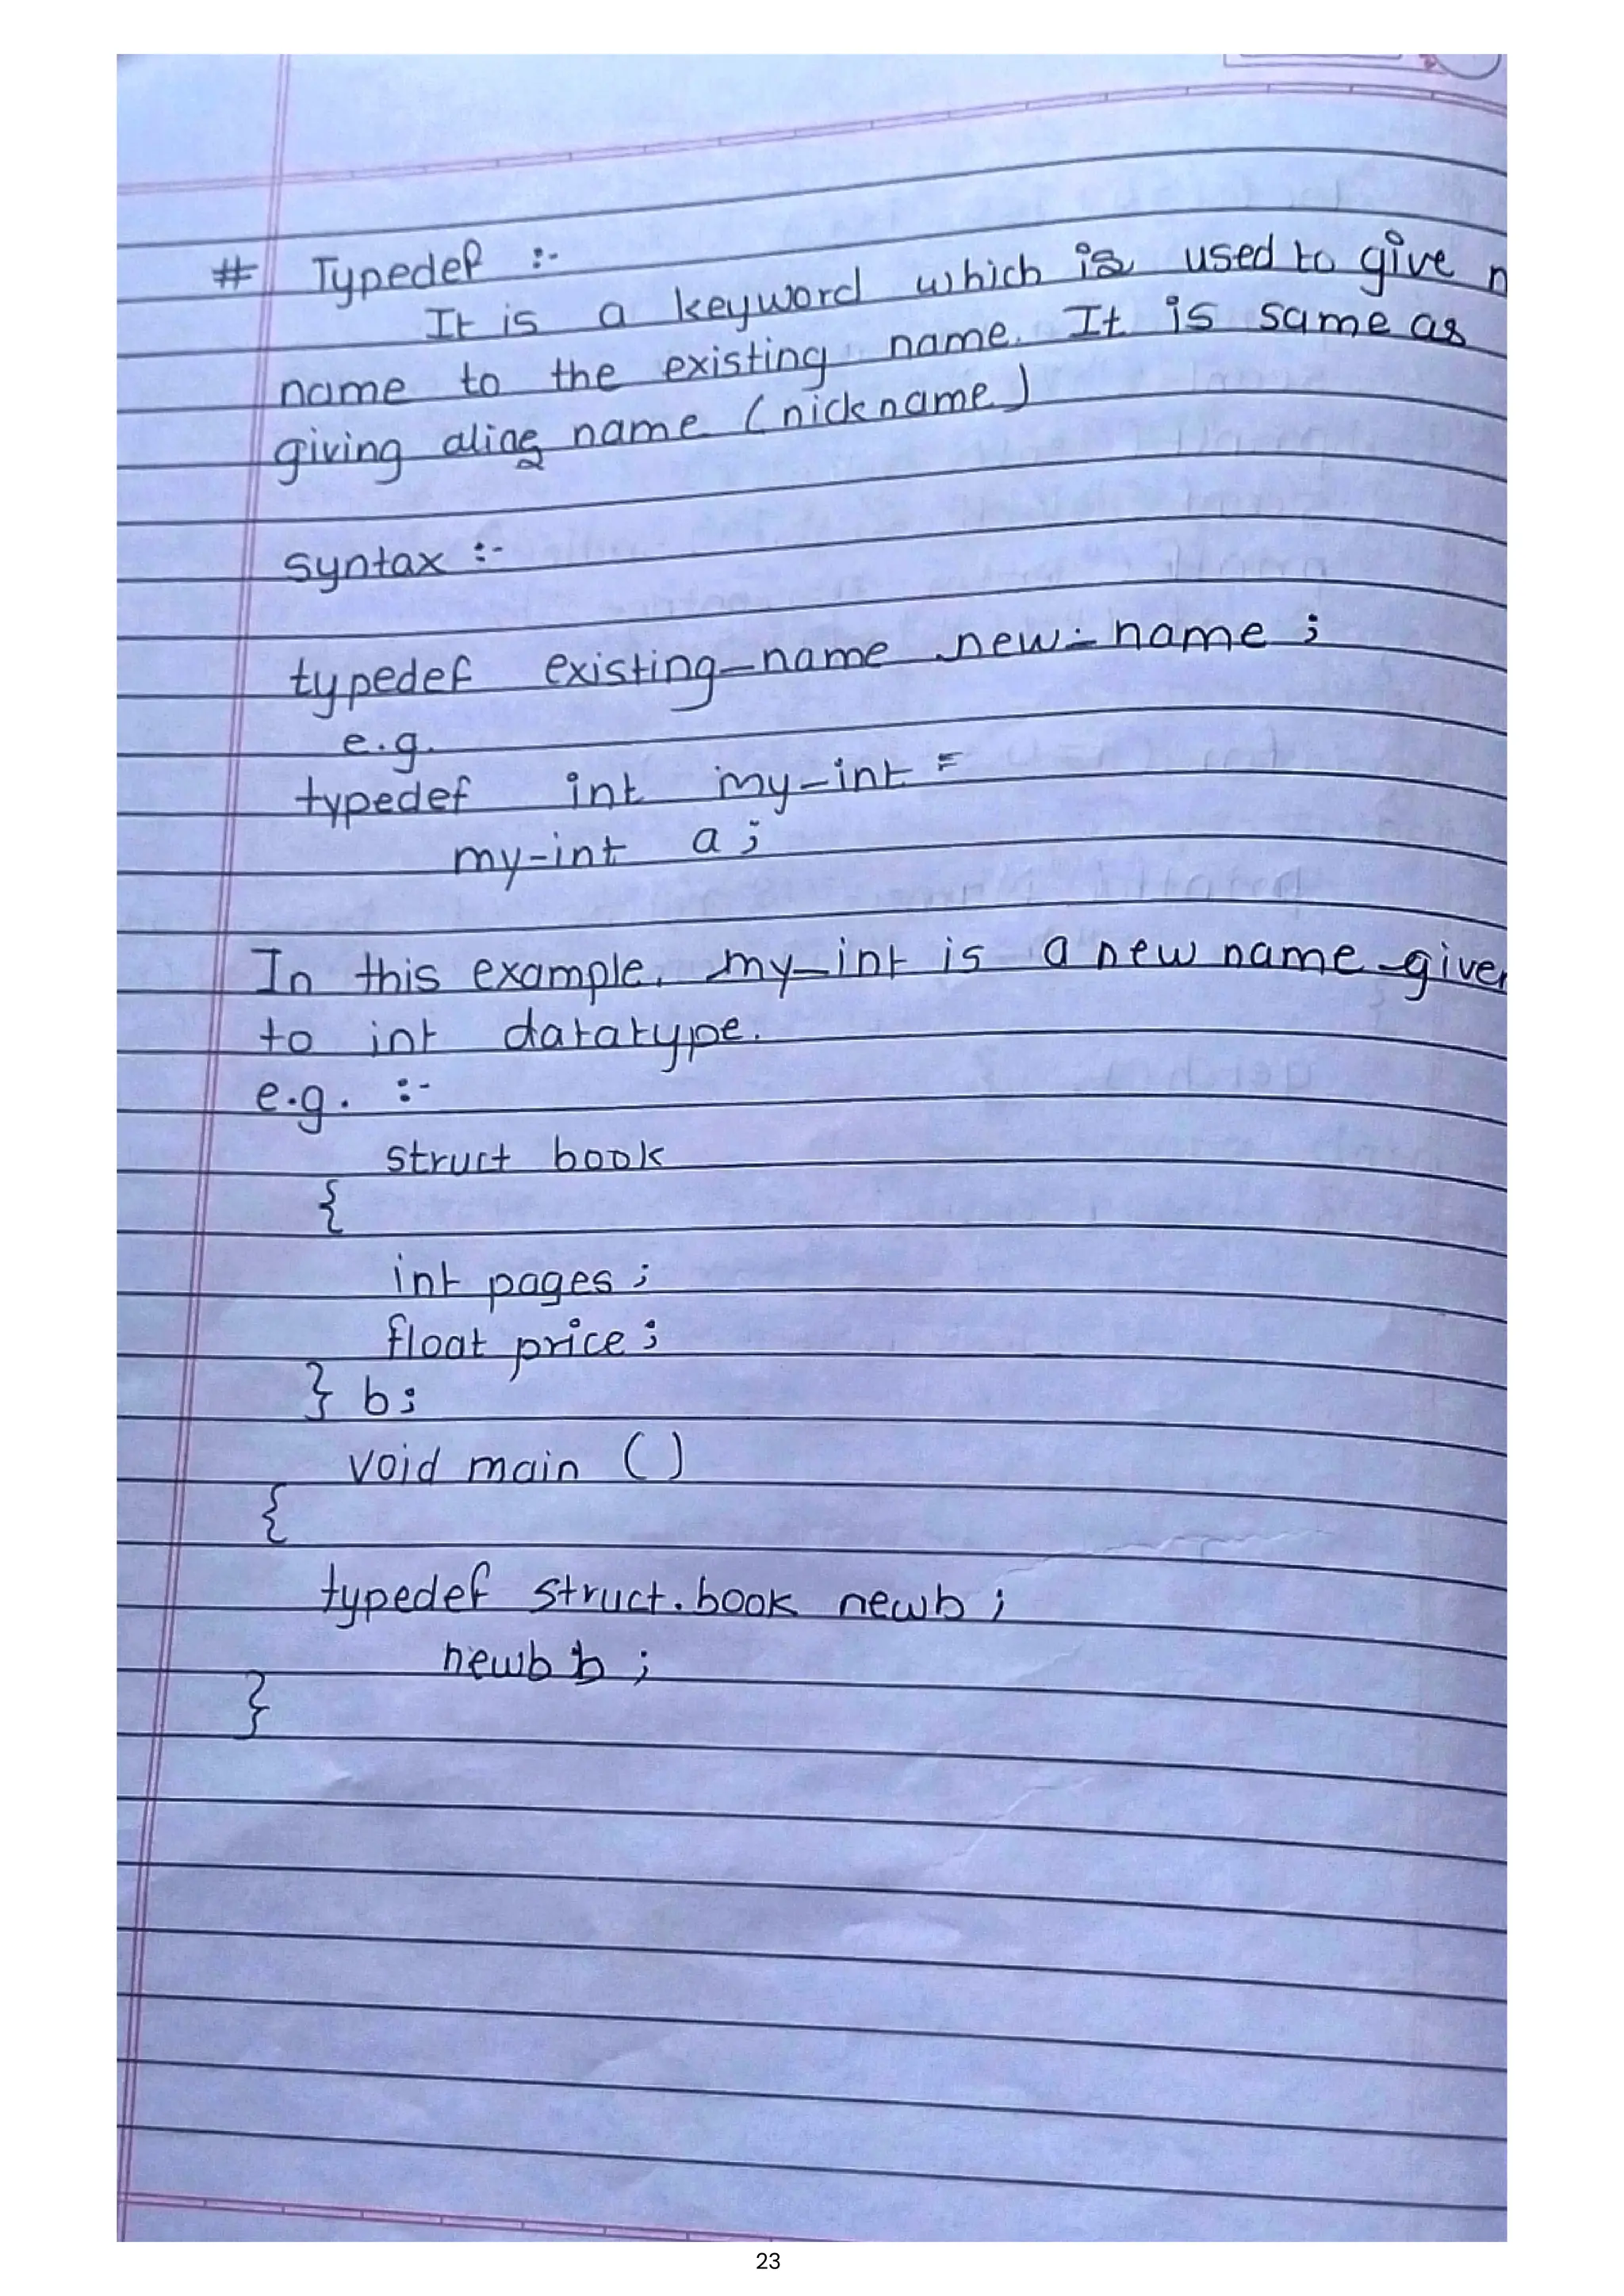 # Typedef :-
It is a keyword which is used to give n
name to the existing name. It is same as
giving alias name (nickname)
syntax :-
typedef existing_name new-name ;
e.g.
typedef int my-int =
my-int a ;
In this example, my-int is a new name given
to int datatype.
e.g. :-
struct book
{
int pages ;
float price ;
} b ;
void main ()
{
typedef struct.book newb ;
newb b ;
}
23